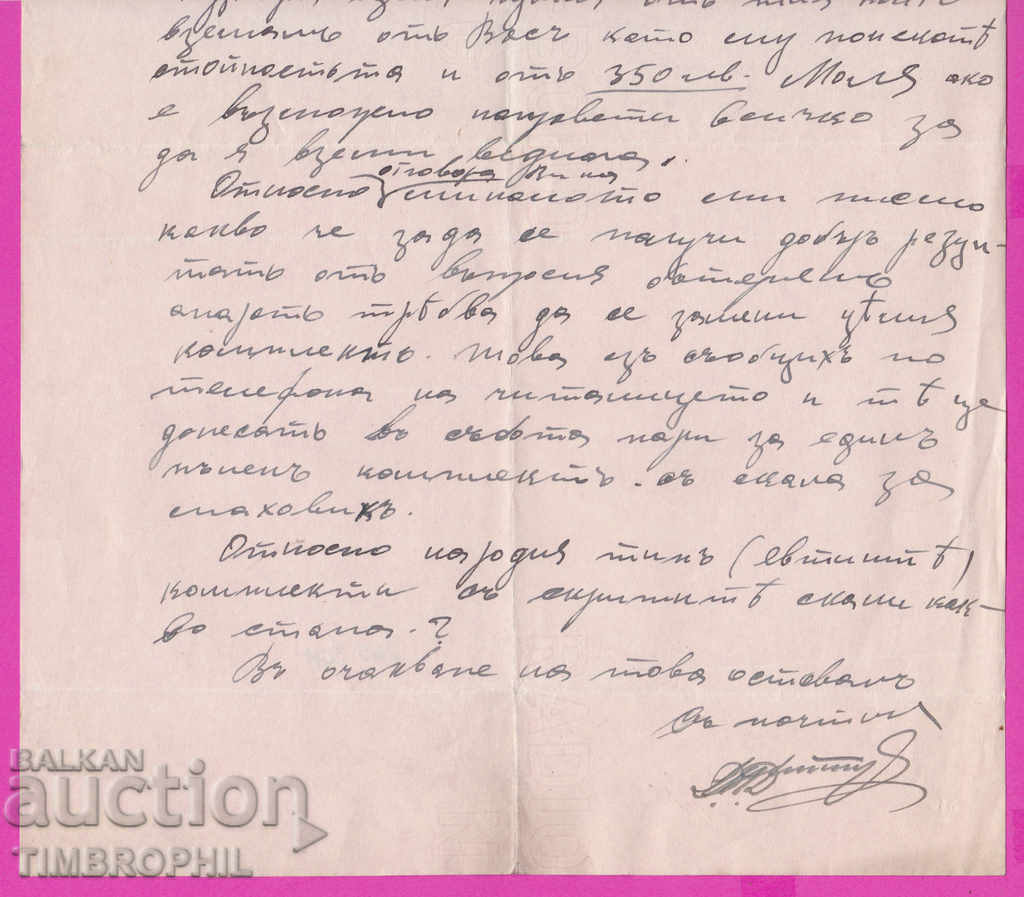 вземамъ отъ Васъ като му поискатъ
стойностьта и отъ 350 лв. Моля ако
е възможно направети всичко за
да я вземи веднага.
отговора Ви на
Относно миналото ми писмо
какво че за да се получи добъръ резул-
татъ отъ въпросния батериенъ
апаратъ трѣбва да се замени цѣлия
комплектъ. Това азъ съобщихъ по
телефона на читалището и тѣ ще
донесатъ въ събота пари за единъ
пъленъ комплектъ. съ скала за
маховикъ.
Относно народния типъ (евтинитѣ)
комплекти съ скритнитѣ скали как-
во стана.?
Въ очакване на това оставамъ
Съ почития
BALKAN
auction
TIMBROPHIL